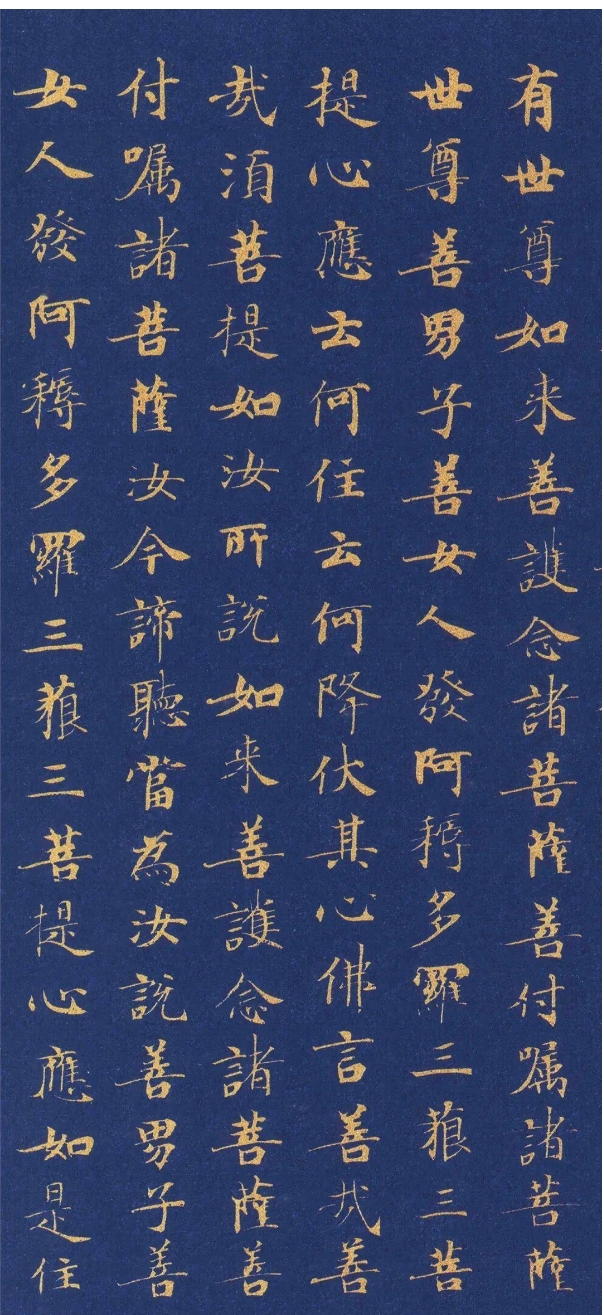 有世尊如来善護念諸菩薩善付嘱諸菩薩
世尊善男子善女人發阿耨多羅三藐三菩
提心應云何住云何降伏其心佛言善哉善
哉須菩提如汝所說如来善護念諸菩薩善
付嘱諸菩薩汝今諦聽當為汝說善男子善
女人發阿耨多羅三藐三菩提心應如是住